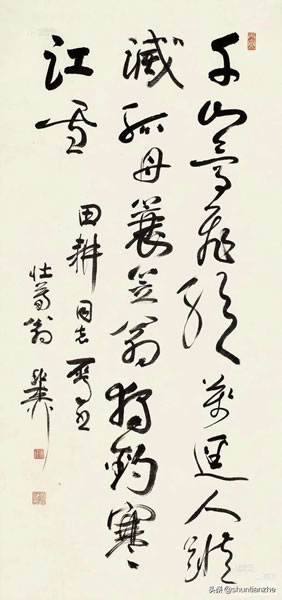 千山鳥飛絕萬徑人蹤
滅孤舟蓑笠翁獨釣寒
江雪
田耕同志屬正
壯暮翁 稚柳
头条 @shuntianzhe